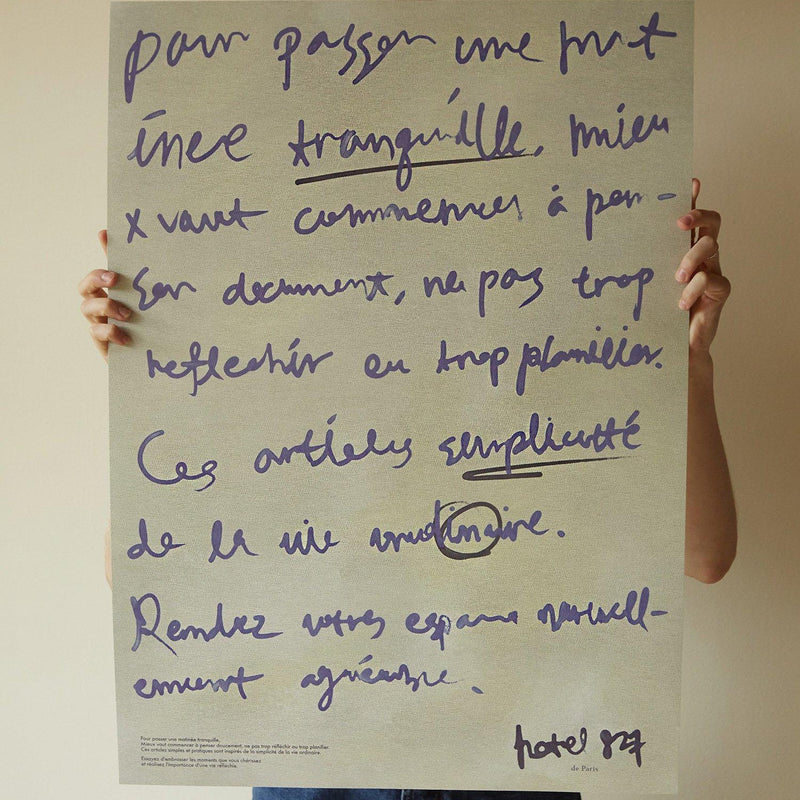 pour passer une mat
inée tranquille. mieu
x vaut commencer à pen-
ser doucement, ne pas trop
reflechir ou trop planifier.
Ces articles simplicité
de la vie
Rendez votres espace naturell-
ement agréable.
hotel 827
de Paris
Pour passer une matinée tranquille,
Mieux vaut commencer à penser doucement, ne pas trop réfléchir ou trop planifier.
Ces articles simples et pratiques sont inspirés de la simplicité de la vie ordinaire.
Essayez d'embrasser les moments que vous chérissez
et réalisez l'importance d'une vie réfléchie.